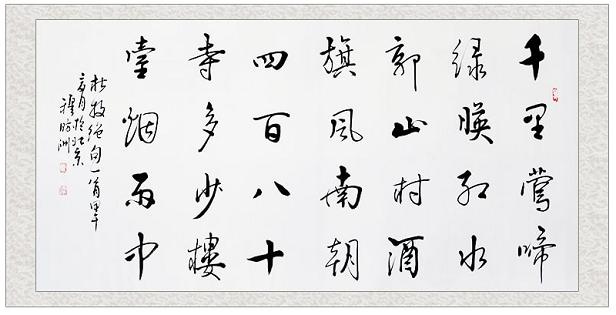 千里莺啼
绿暎红水
郭山村酒
旗风南朝
四百八十
寺多少樓
臺烟雨中
杜牧绝句一首甲午
月於北京